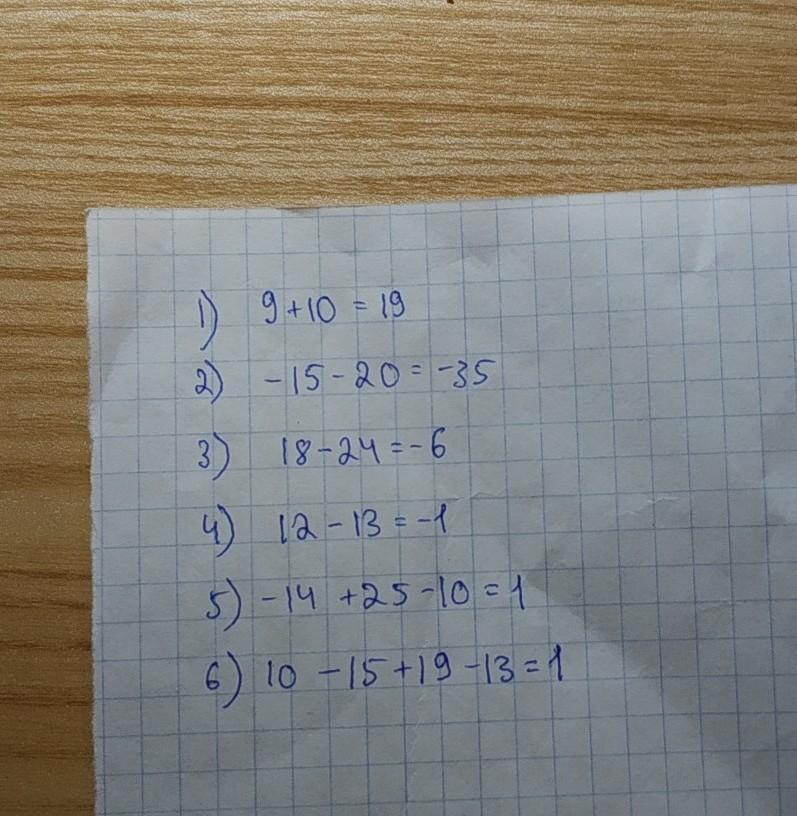 1) 9+10 = 19
2) -15-20 = -35
3) 18-24 = -6
4) 12-13 = -1
5) -14 +25-10 = 1
6) 10 -15+19-13 = 1